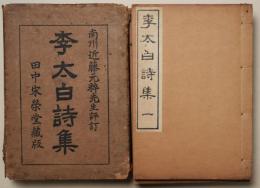 南州近藤元粋先生評訂
李太白詩集
田中宋榮堂藏版
李太白詩集 一